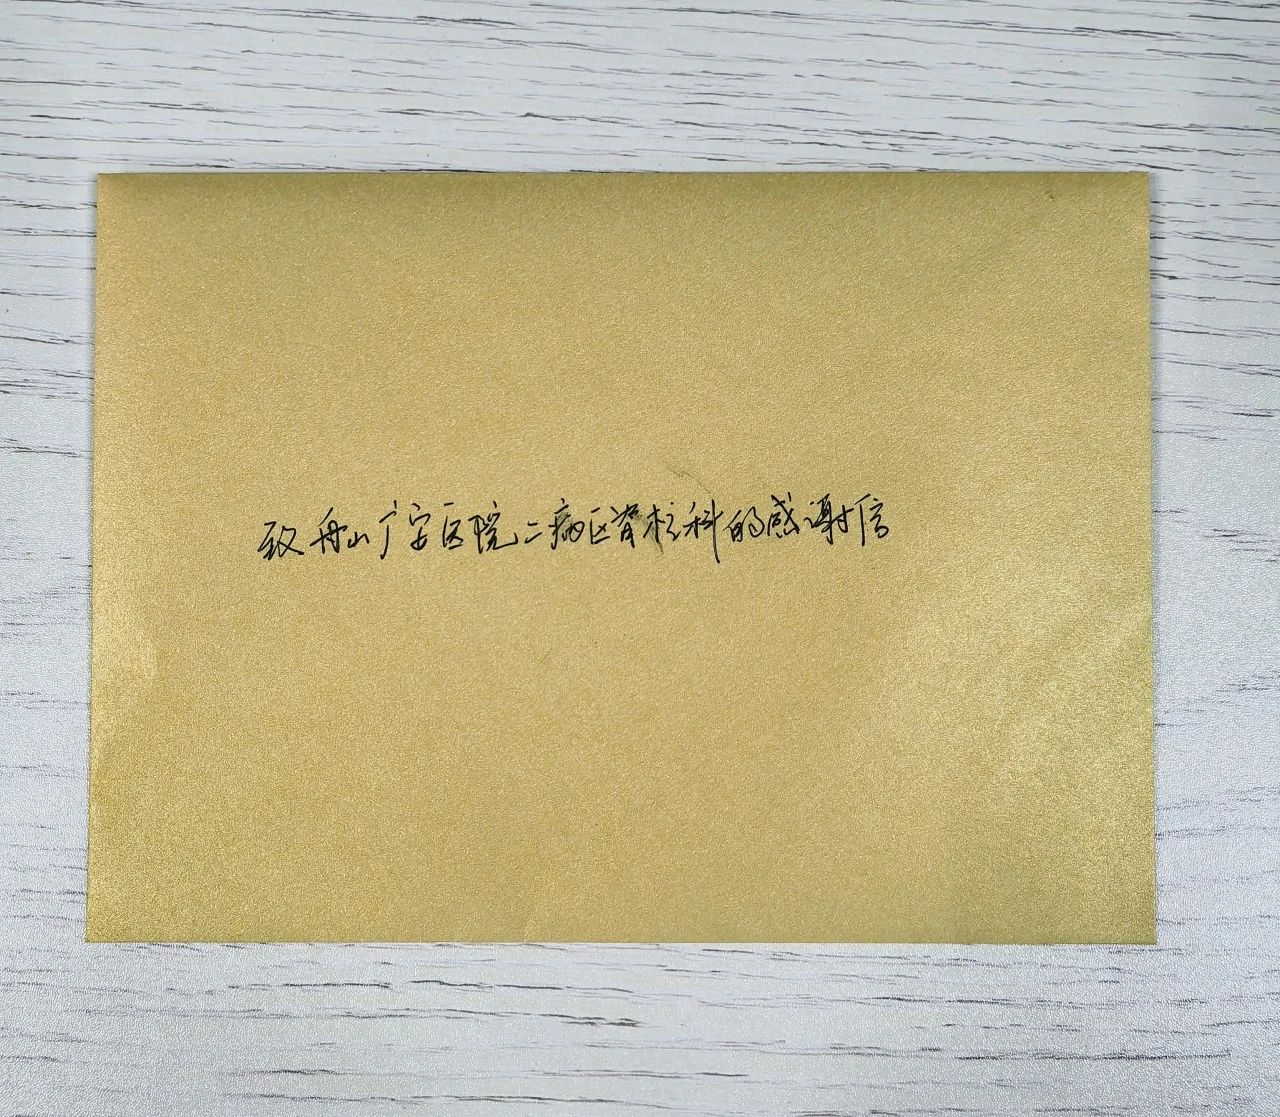 致舟山广安医院二病区脊柱科的感谢信